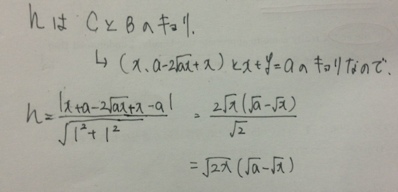 hは CとBのキョリ.
↳ (x, a-2√ax+x) とx+y=aのキョリなので.
h = |x+a-2√ax+x-a| / √1²+1² = 2√x(√a-√x) / √2
= √2x (√a-√x)